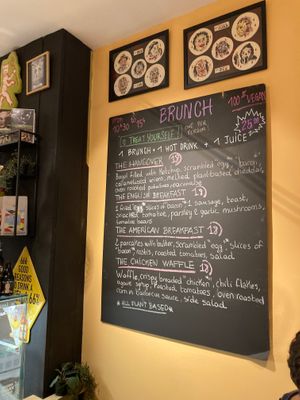 BRUNCH
100% VEGAN
TREAT YOURSELF!
1 BRUNCH + 1 HOT DRINK + 1 JUICE
THE HANGOVER
Bagel filled with Ketchup, scrambled "egg", "bacon",
caramelized onions, melted plant-based cheddar,
oven roasted potatoes, mayonnaise
THE ENGLISH BREAKFAST
1 fried "egg", slices of "bacon", 1 sausage, toast,
tomatoe, parsley & garlic mushrooms,
tomatoe beans
THE AMERICAN BREAKFAST
2 pancakes with butter, scrambled "egg", slices of
"bacon", rostis, roasted tomatoes, salad
THE CHICKEN WAFFLE
Waffle, crispy breaded "chicken", chili flakes,
agave syrup, roasted tomatoes, oven roasted
corn in barbecue sauce, side salad
*ALL PLANT BASED*
GOOD
REASONS
TO DRINK A